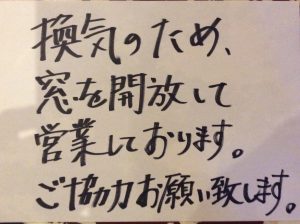 換気のため、
窓を開放して
営業しております。
ご協力お願い致します。